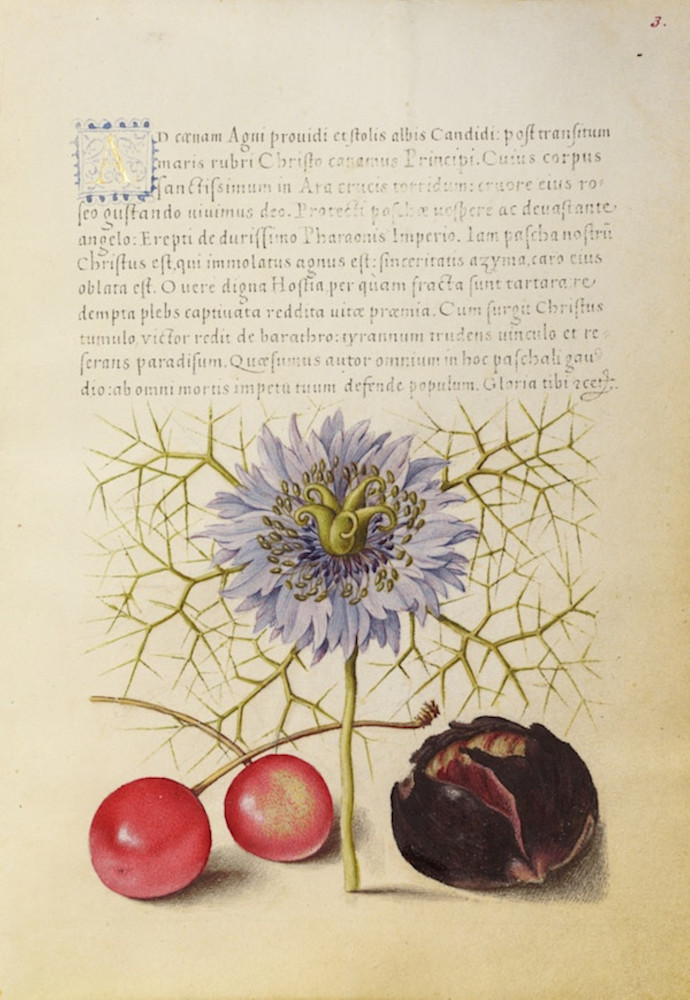 3.
AD cœnam Agni prouidi et stolis albis Candidi: post transitum
maris rubri Christo canamus Principi. Cuius corpus
sanctissimum in Ara crucis torridum: cruore eius ro-
seo gustando uiuimus deo. Protecti paschæ uespere ac deuastante
angelo: Erepti de durissimo Pharaonis Imperio. Iam pascha nostrū
Christus est, qui immolatus agnus est: sinceritatis azyma, caro eius
oblata est. O uere digna Hostia, per quam fracta sunt tartara: re-
dempta plebs captiuata reddita uitæ præmia. Cum surgit Christus
tumulo, victor redit de barathro: tyrannum trudens uinculo et re-
serans paradisum. Quæsumus autor omnium in hoc paschali gau-
dio: ab omni mortis impetu tuum defende populum. Gloria tibi &cet.